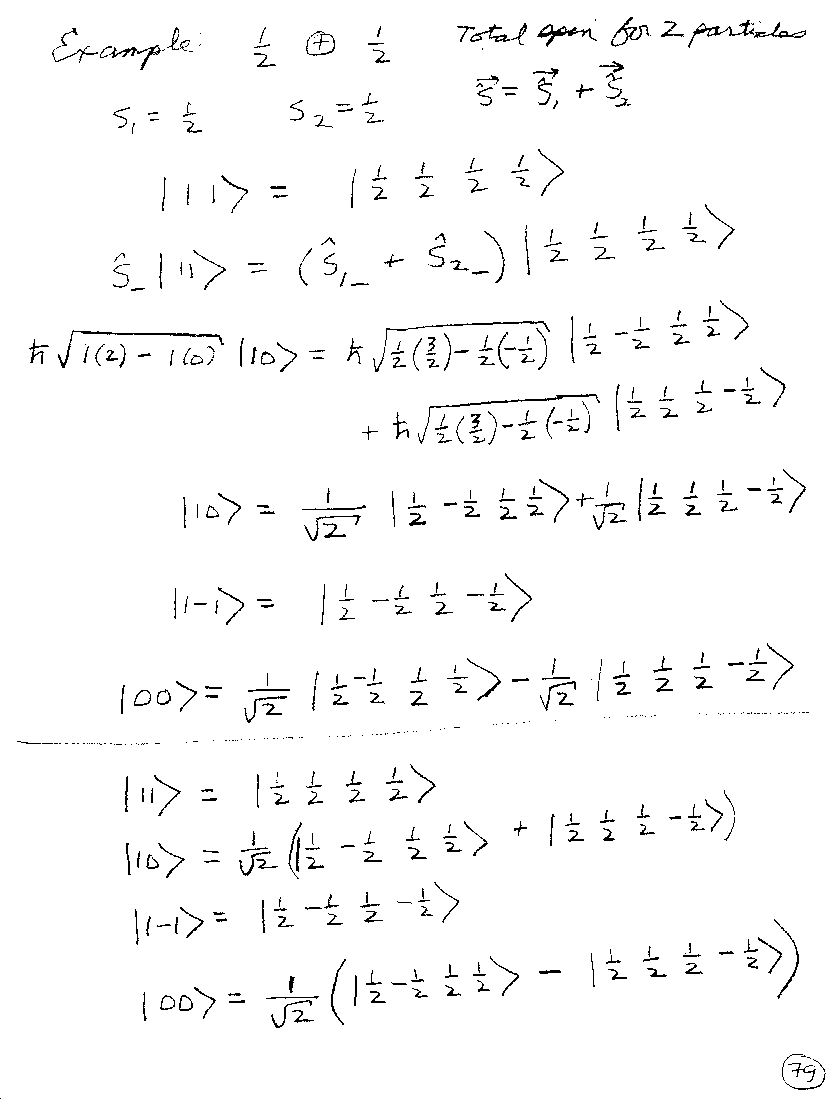 Example: 1/2 ⊕ 1/2 Total spin for 2 particles
S₁ = 1/2 S₂ = 1/2 S⃗ = S⃗₁ + S⃗₂
|11> = |1/2 1/2 1/2 1/2>
Ŝ₋|11> = (Ŝ₁₋ + Ŝ₂₋)|1/2 1/2 1/2 1/2>
ħ√(1(2) - 1(0)) |10> = ħ√(1/2(3/2) - 1/2(-1/2)) |1/2 -1/2 1/2 1/2>
+ ħ√(1/2(3/2) - 1/2(-1/2)) |1/2 1/2 1/2 -1/2>
|10> = 1/√2 |1/2 -1/2 1/2 1/2> + 1/√2 |1/2 1/2 1/2 -1/2>
|1-1> = |1/2 -1/2 1/2 -1/2>
|00> = 1/√2 |1/2 -1/2 1/2 1/2> - 1/√2 |1/2 1/2 1/2 -1/2>
|11> = |1/2 1/2 1/2 1/2>
|10> = 1/√2 (|1/2 -1/2 1/2 1/2> + |1/2 1/2 1/2 -1/2>)
|1-1> = |1/2 -1/2 1/2 -1/2>
|00> = 1/√2 (|1/2 -1/2 1/2 1/2> - |1/2 1/2 1/2 -1/2>)
79